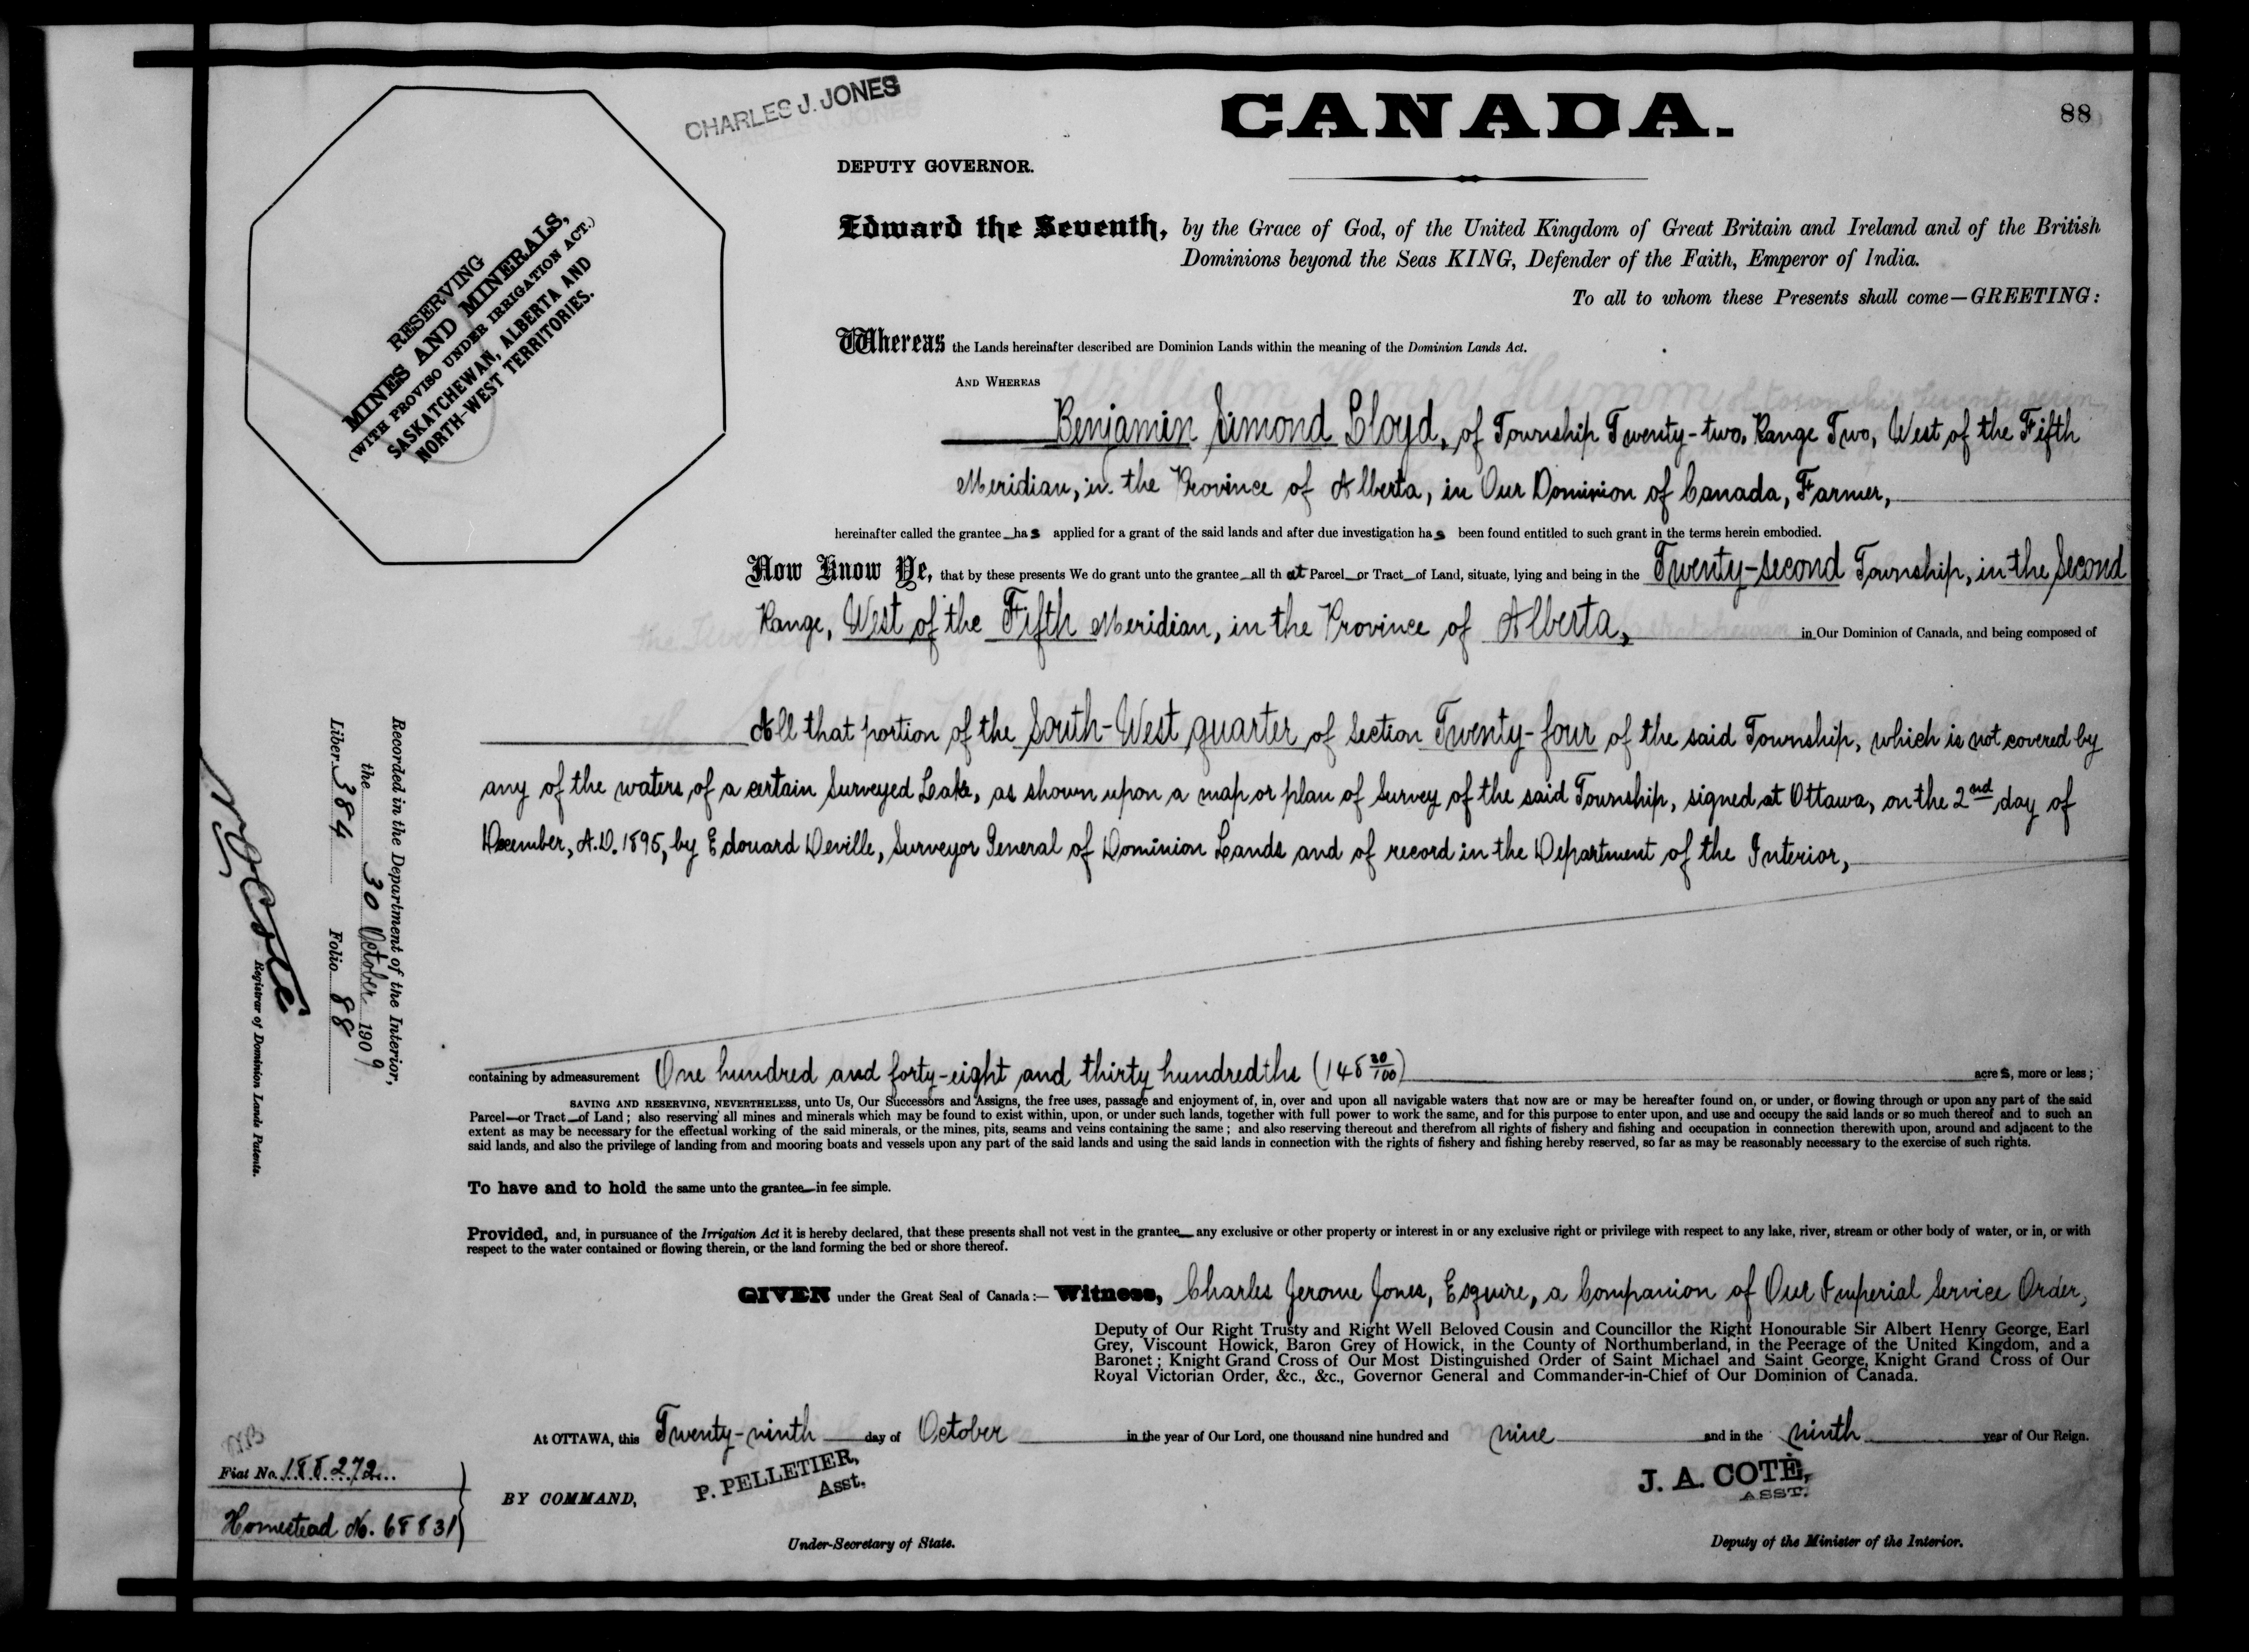 CHARLES J. JONES
CANADA.
88
DEPUTY GOVERNOR.
RESERVING
MINES AND MINERALS,
(WITH PROVISO UNDER IRRIGATION ACT.)
SASKATCHEWAN, ALBERTA AND
NORTH-WEST TERRITORIES.
Edward the Seventh, by the Grace of God, of the United Kingdom of Great Britain and Ireland and of the British
Dominions beyond the Seas KING, Defender of the Faith, Emperor of India.
To all to whom these Presents shall come—GREETING:
Whereas the Lands hereinafter described are Dominion Lands within the meaning of the Dominion Lands Act.
AND WHEREAS
Benjamin Simond Lloyd, of Township Twenty-two, Range Two, West of the Fifth
Meridian, in the Province of Alberta, in Our Dominion of Canada, Farmer,
hereinafter called the grantee has applied for a grant of the said lands and after due investigation has been found entitled to such grant in the terms herein embodied.
Now Know Ye, that by these presents We do grant unto the grantee all that Parcel or Tract of Land, situate, lying and being in the Twenty-second Township, in the Second
Range, West of the Fifth Meridian, in the Province of Alberta, in Our Dominion of Canada, and being composed of
All that portion of the South-West quarter of Section Twenty-four of the said Township, which is not covered by
any of the waters of a certain Surveyed Lake, as shown upon a map or plan of Survey of the said Township, signed at Ottawa, on the 2nd day of
December, A.D. 1895, by Edouard Deville, Surveyor General of Dominion Lands and of record in the Department of the Interior,
Recorded in the Department of the Interior,
the 30 October 1909
Liber 384 Folio 88
N O Coté
Registrar of Dominion Lands Patents.
containing by admeasurement One hundred and forty-eight and thirty hundredths (148 30/100) acres, more or less;
SAVING AND RESERVING, NEVERTHELESS, unto Us, Our Successors and Assigns, the free uses, passage and enjoyment of, in, over and upon all navigable waters that now are or may be hereafter found on, or under, or flowing through or upon any part of the said
Parcel—or Tract—of Land; also reserving all mines and minerals which may be found to exist within, upon, or under such lands, together with full power to work the same, and for this purpose to enter upon, and use and occupy the said lands or so much thereof and to such an
extent as may be necessary for the effectual working of the said minerals, or the mines, pits, seams and veins containing the same; and also reserving thereout and therefrom all rights of fishery and fishing and occupation in connection therewith upon, around and adjacent to the
said lands, and also the privilege of landing from and mooring boats and vessels upon any part of the said lands and using the said lands in connection with the rights of fishery and fishing hereby reserved, so far as may be reasonably necessary to the exercise of such rights.
To have and to hold the same unto the grantee in fee simple.
Provided, and, in pursuance of the Irrigation Act it is hereby declared, that these presents shall not vest in the grantee any exclusive or other property or interest in or any exclusive right or privilege with respect to any lake, river, stream or other body of water, or in, or with
respect to the water contained or flowing therein, or the land forming the bed or shore thereof.
GIVEN under the Great Seal of Canada:— Witness, Charles Jerome Jones, Esquire, a Companion of Our Imperial Service Order,
Deputy of Our Right Trusty and Right Well Beloved Cousin and Councillor the Right Honourable Sir Albert Henry George, Earl
Grey, Viscount Howick, Baron Grey of Howick, in the County of Northumberland, in the Peerage of the United Kingdom, and a
Baronet; Knight Grand Cross of Our Most Distinguished Order of Saint Michael and Saint George, Knight Grand Cross of Our
Royal Victorian Order, &c., &c., Governor General and Commander-in-Chief of Our Dominion of Canada.
At OTTAWA, this Twenty-ninth day of October in the year of Our Lord, one thousand nine hundred and nine and in the ninth year of Our Reign.
Fiat No. 188272
Homestead No. 68831
BY COMMAND,
P. PELLETIER,
Asst.
J. A. COTÉ,
ASST.
Under-Secretary of State.
Deputy of the Minister of the Interior.